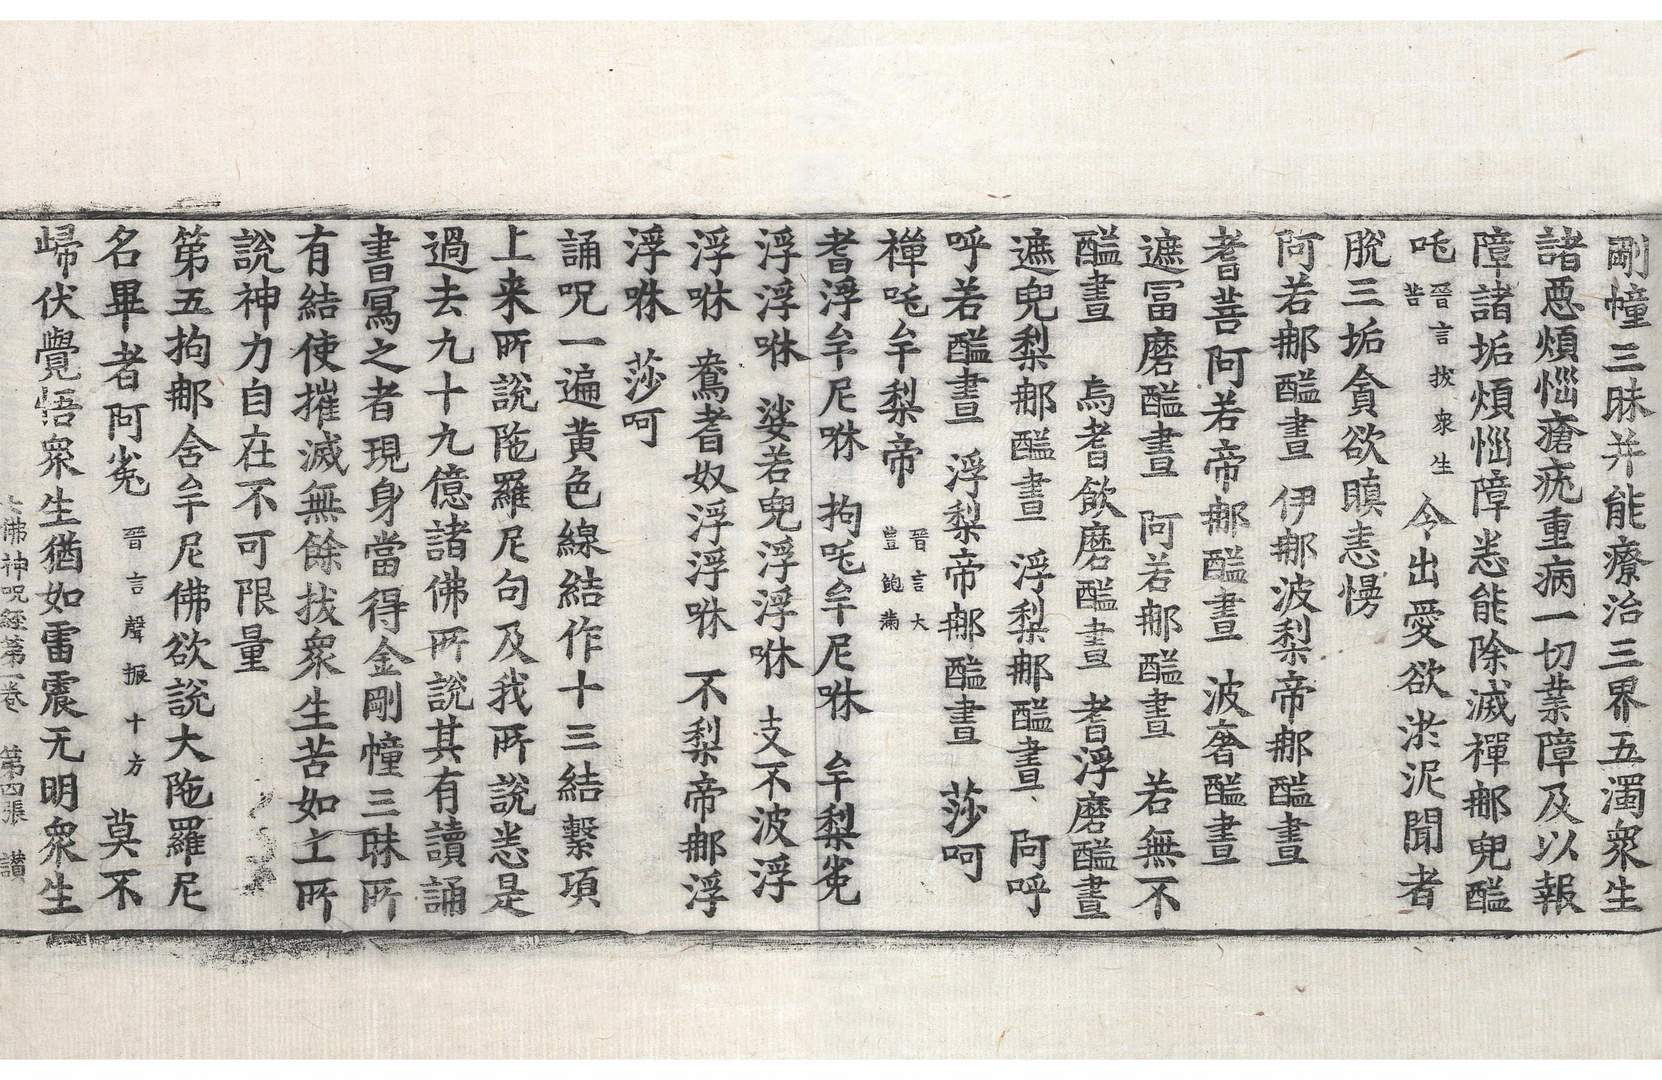 剛幢三昧并能療治三界五濁衆生
諸惡煩惱瘡疣重病一切業障及以報
障諸垢煩惱障悉能除滅禪郍兜醯
吒晉言拔衆生苦 今出愛欲淤泥聞者
脫三垢貪欲瞋恚慢
阿若郍醯晝 伊郍波梨帝郍醯晝
耆菩阿若帝郍醯晝 波奢醯晝
遮冨磨醯晝 阿若郍醯晝 若無不
醯晝 烏耆飲磨醯晝 耆浮磨醯晝
遮兜梨郍醯晝 浮梨郍醯晝 阿呼
呼若醯晝 浮梨帝郍醯晝 莎呵
禪吒牟梨帝 晉言大豊飽滿
耆浮牟尼咻 拘吒牟尼咻 牟梨㝹
浮浮咻 婆若兜浮浮咻 支不波浮
浮咻 鴦耆奴浮浮咻 不梨帝郍浮
浮咻 莎呵
誦呪一遍黃色線結作十三結繫項
上来所說陁羅尼句及我所說悉是
過去九十九億諸佛所說其有讀誦
書冩之者現身當得金剛幢三昧所
有結使摧滅無餘拔衆生苦如上所
說神力自在不可限量
第五拘郍舍牟尼佛欲說大陁羅尼
名畢者阿㝹 晉言聲振十方 莫不
歸伏覺悟衆生猶如雷震无明衆生
佛神呪經第一卷 第四張 讃